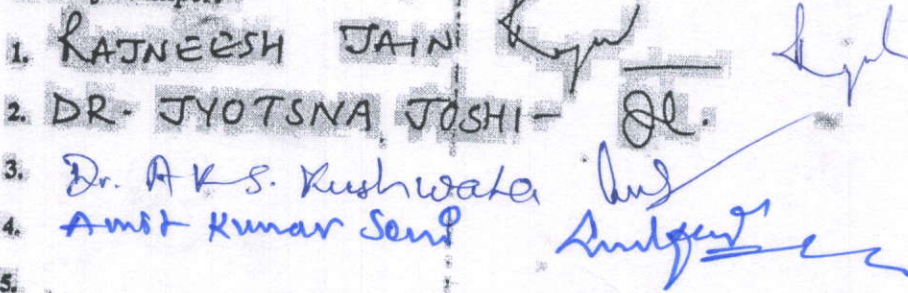 1. RAJNEESH JAIN
2. DR. JYOTSNA JOSHI -
3. Dr. A K S. Kushwaha
4. Amit Kumar Soni
5.